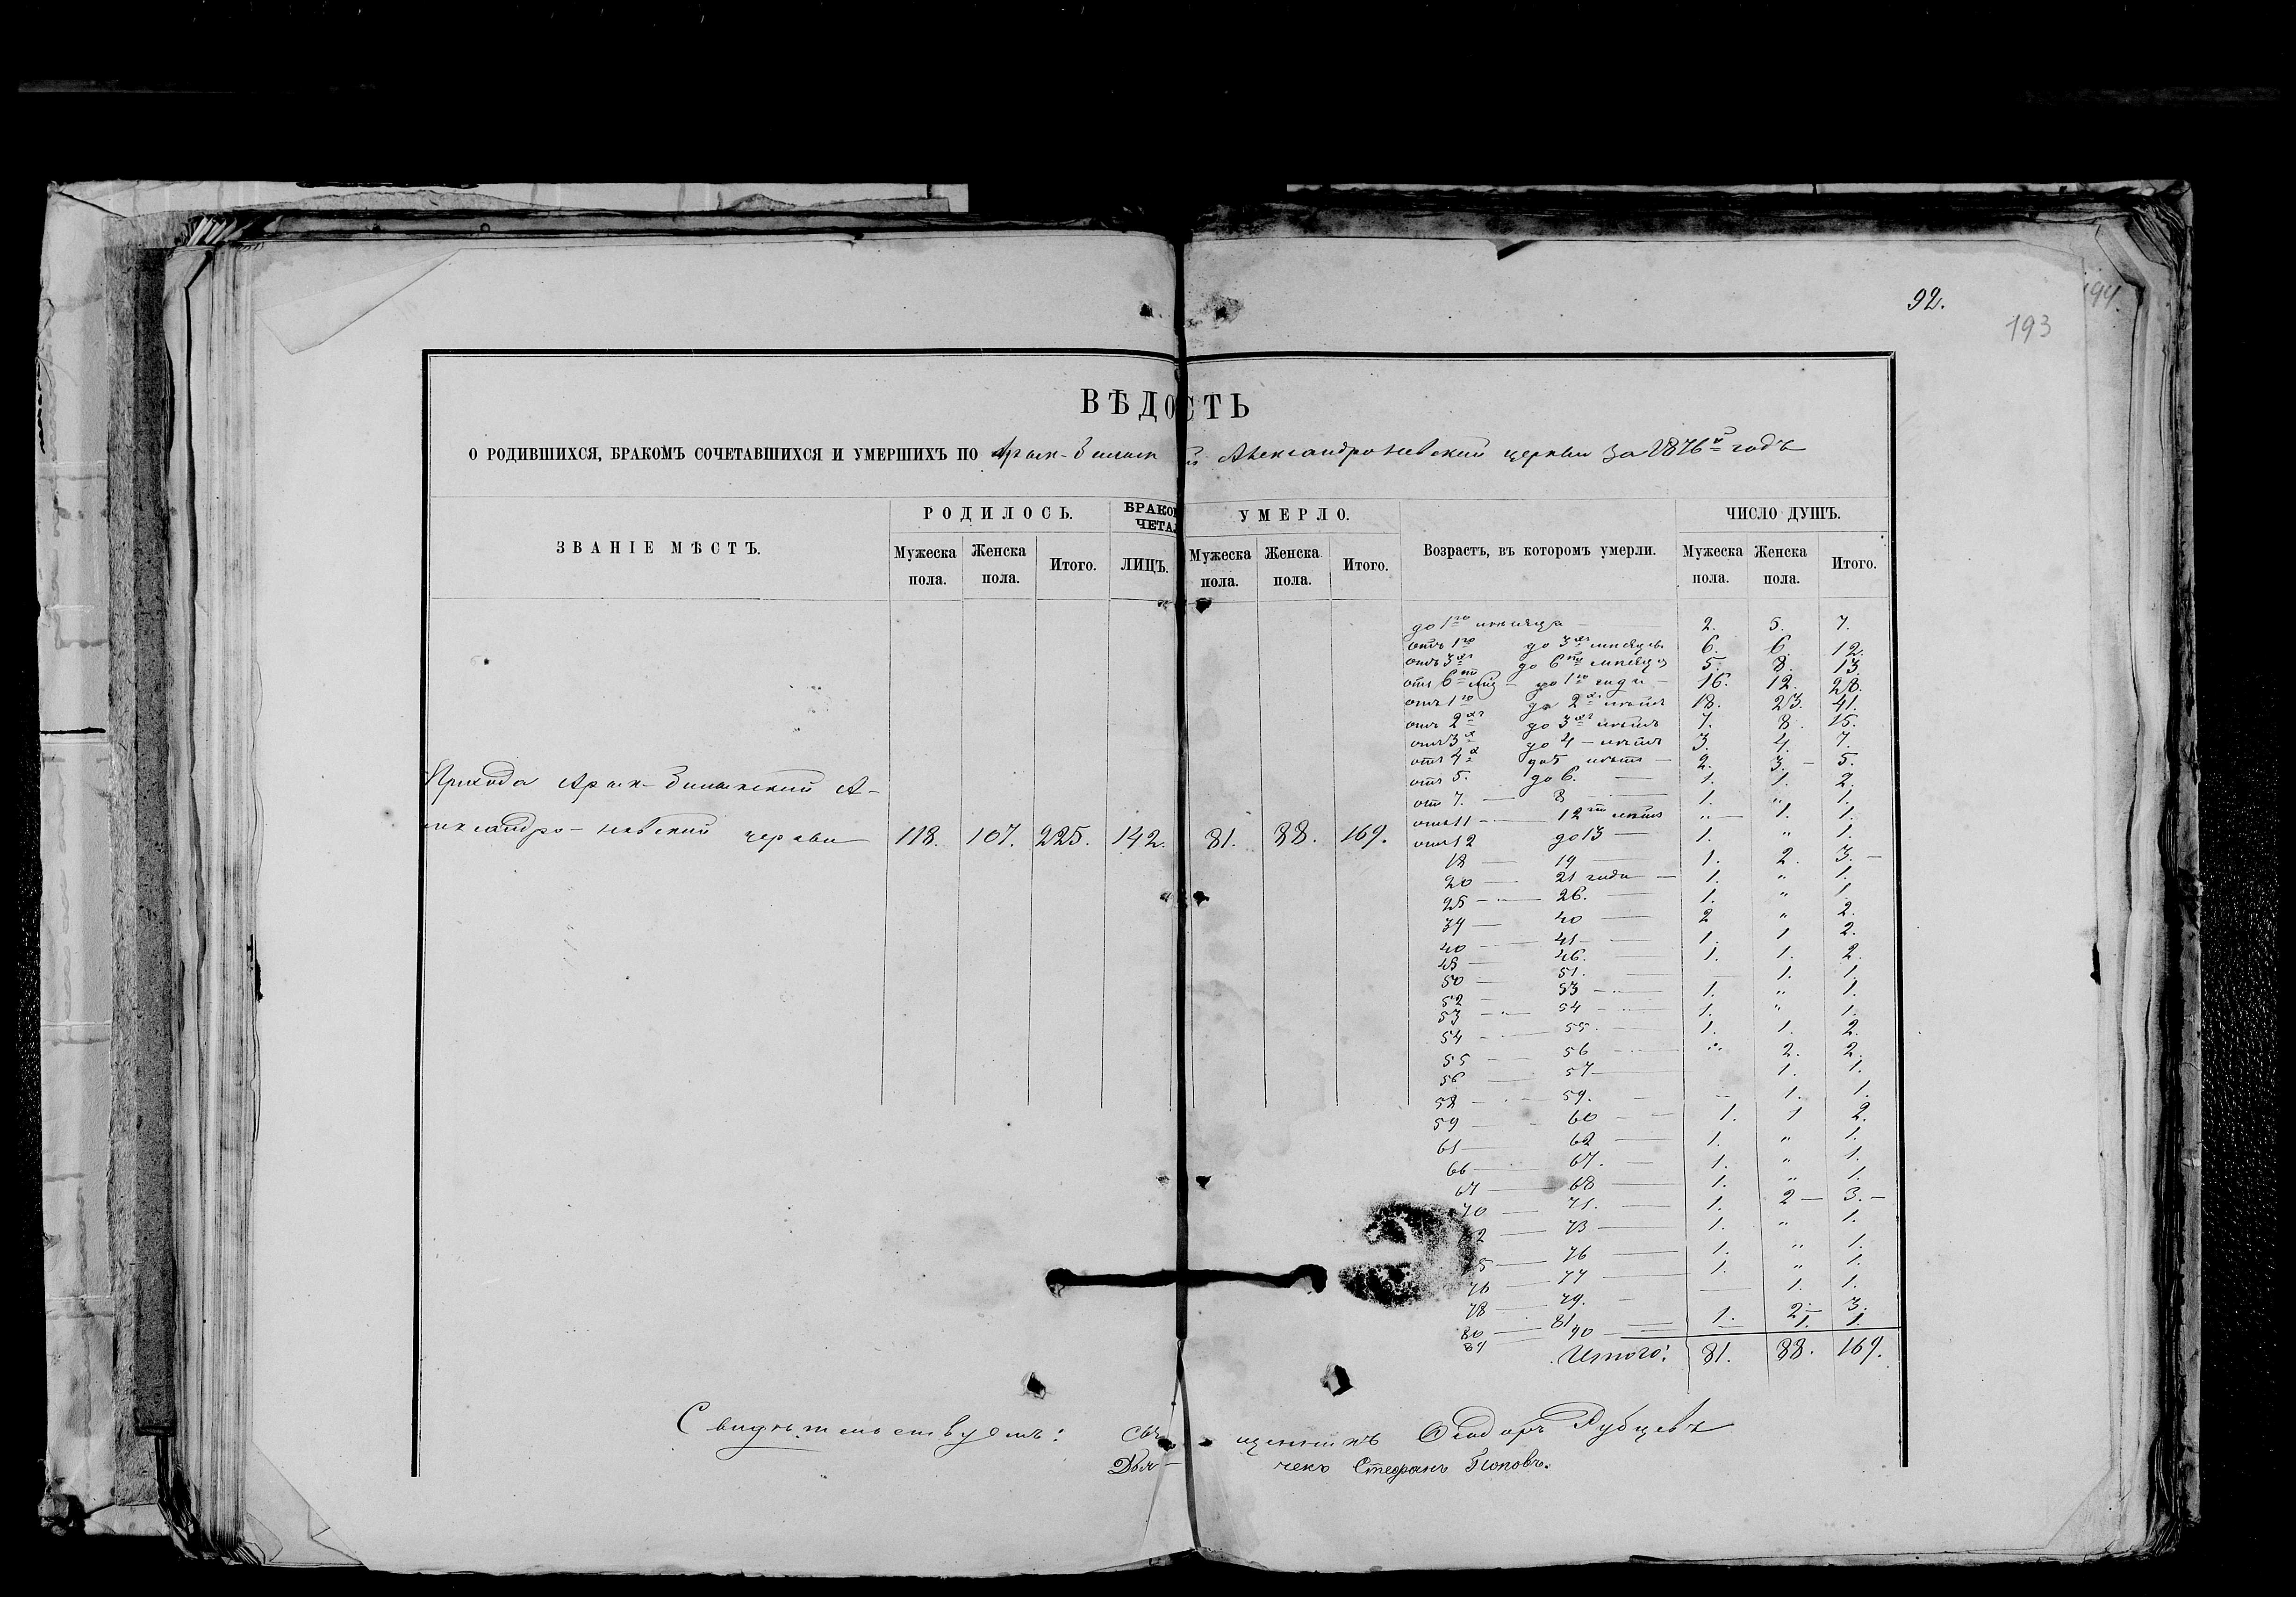 92.
194.
193
ВѢДОСТЬ
О РОДИВШИХСЯ, БРАКОМЪ СОЧЕТАВШИХСЯ И УМЕРШИХЪ ПО Александроневской церкви за 1876й годъ
ЗВАНІЕ МѢСТЪ.
РОДИЛОСЬ.
Мужеска пола.
Женска пола.
Итого.
БРАКО
ЧЕТА
ЛИЦЪ.
УМЕРЛО.
Мужеска пола.
Женска пола.
Итого.
Возрастъ, въ которомъ умерли.
ЧИСЛО ДУШЪ.
Мужеска пола.
Женска пола.
Итого.
Прихода А-
лександро-невской церкви 118. 107. 225. 142. 81. 88. 169.
до 1го мѣсяца — 2. 5. 7.
отъ 1го до 3хъ мѣсяцев 6. 6. 12.
отъ 3хъ до 6ти мѣсяц 5. 8. 13.
отъ 6ти — до 1го года — 16. 12. 28.
отъ 1го до 2хъ лѣтъ 18. 23. 41.
отъ 2хъ до 3хъ лѣтъ 7. 8. 15.
отъ 3х до 4 — лѣтъ 3. 4. 7.
отъ 4х до 5 лѣтъ — 2. 3. — 5.
отъ 5. до 6. — 1. 1. 2.
от 7. — 8 — 1. " 1.
отъ 11 — 12ти лѣтъ " — 1. 1.
отъ 12 до 13 — 1. " 1.
18 — 19 — 1. 2. 3. —
20 — 21 года — 1. " 1.
25 — 26. — 1. " 1.
39 — 40 — 2 " 2.
40 — 41 — 1. 1 2.
45 — 46. — 1. 1. 2.
50 — 51. — — 1. 1.
52 — 53 — 1. " 1.
53 — 54 — 1. " 1.
54 — 55. — 1. 1. 2.
55 — 56 — " 2. 2.
56 — 57 — 1. 1.
58 — 59. — " 1. 1.
59 — 60 — 1. 1 2.
61 — 62 — 1. " 1.
66 — 67. — 1. " 1.
67 — 68 — 1. " 1.
70 — 71. — 1. 2 — 3. —
2 — 73 — 1. " 1.
5 — 76 — 1. " 1.
76 — 77 — 1. " 1.
78 — 79. — — 1. 1.
80 — 81 — 1. 2 — 3.
89 — 90 — 1. 1.
Итого: 81. 88. 169.
Свидѣтельствуемъ: Свя щенникъ Ѳеодоръ Рубцевъ
Дья чекъ Стефанъ Поповъ.